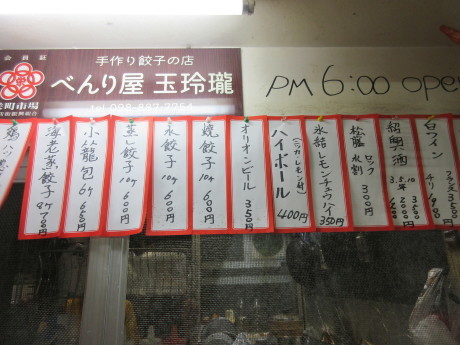 会員証
栄町市場
手作り餃子の店
べんり屋 玉玲瓏
tel 098-887-7754
PM 6:00 open
白ワイン
グラス 350
紹興酒
3年 5年 10年
松藤 ロック 水割 300円
氷結レモンチュウハイ 350円
ハイボール 400円
オリオンビール 350円
焼餃子 10ヶ 600円
水餃子 10ヶ 600円
蒸し餃子 10ヶ 600円
小籠包 6ケ 650円
海老蒸餃子 8ケ 700円